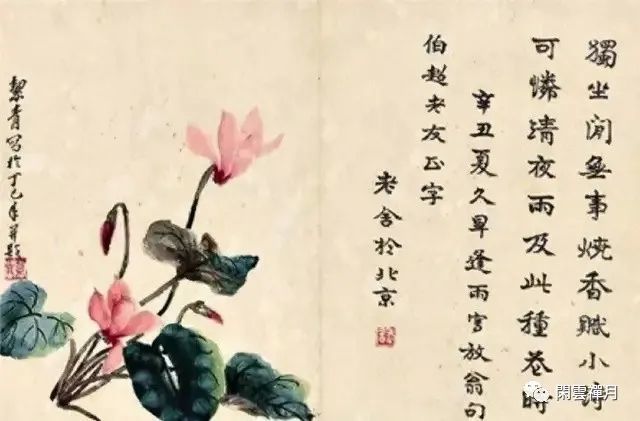 獨坐閒無事燒香賦小詩
可憐清夜雨及此種花時
辛丑夏久旱逢雨写放翁句
伯超老友正字
老舍於北京
絜青写於丁巳年並題
閑雲禪月